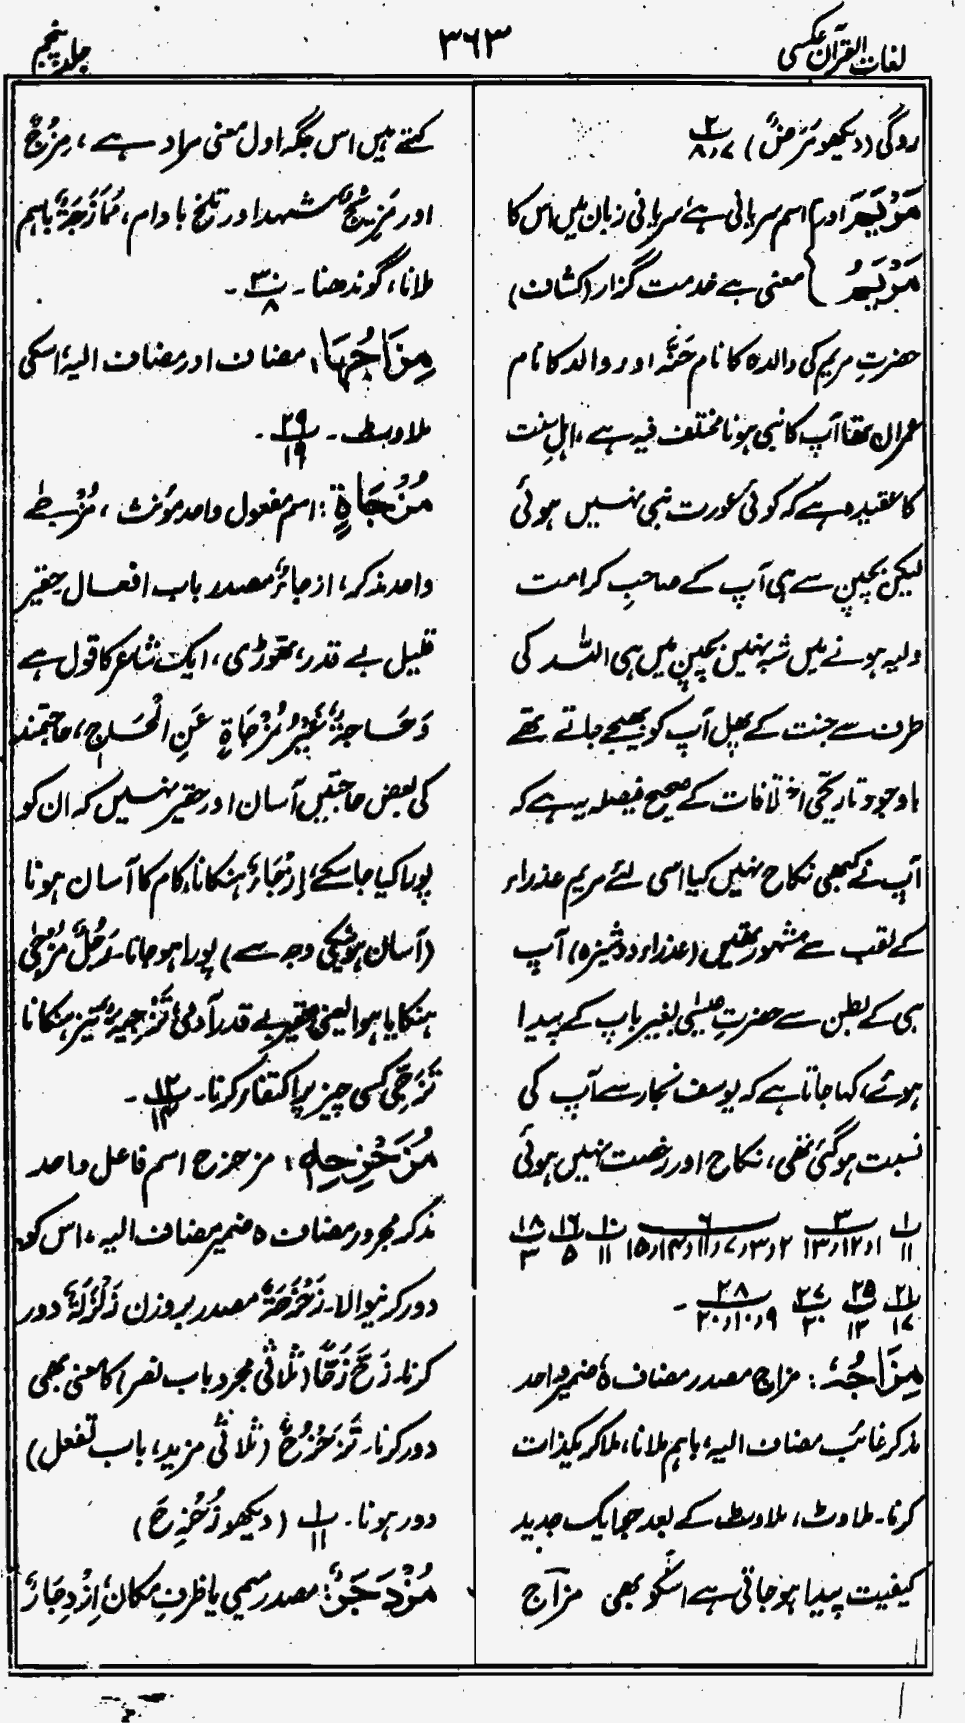 لغات القرآن عکسی
۳۶۳
جلد پنجم
روگی (دیکھو مَرَضٌ) ۲ ۸٫۷
مَرْیَمَ اور اسم سریانی ہے سریانی زبان میں اس کا
مَرْیَمُ معنی ہے خدمت گزار (کشاف)
حضرتِ مریم کی والدہ کا نام حَنَّہ اور والد کا نام
عمران تھا آپ کا نبی ہونا مختلف فیہ ہے، اہلِ سنت
کا عقیدہ ہے کہ کوئی عورت نبی نہیں ہوئی
لیکن بچپن سے ہی آپ کے صاحبِ کرامت
ولیہ ہونے میں شبہ نہیں بچپن میں ہی اللہ کی
طرف سے جنت کے پھل آپ کو بھیجے جاتے تھے
باوجود تاریخی اختلافات کے صحیح فیصلہ یہ ہے کہ
آپ نے کبھی نکاح نہیں کیا اسی لئے مریم عذراء
کے لقب سے مشہور تھیں (عذراء دوشیزہ) آپ
ہی کے بطن سے حضرتِ عیسٰی بغیر باپ کے پیدا
ہوئے، کہا جاتا ہے کہ یوسف نجار سے آپ کی
نسبت ہو گئی تھی، نکاح اور رخصت نہیں ہوئی
۱ ۱۱ ۳ ۱۳٫۱۲٫۱ ۶ ۱۵٫۱۴٫۱۱٫۷٫۳٫۲ ۱۰ ۱۱ ۱۶ ۵ ۱۸ ۳
۲۱ ۱۷ ۲۵ ۱۲ ۲۷ ۲۰ ۲۸ ۲۰٫۱۰٫۹ ۔
مِزَاجُہٗ: مزاج مصدر مضاف ہٗ ضمیر واحد
مذکر غائب مضاف الیہ، باہم ملانا، ملا کر یکذات
کرنا۔ ملاوٹ، ملاوٹ کے بعد جو ایک جدید
کیفیت پیدا ہو جاتی ہے اسکو بھی مزاج
کہتے ہیں اس جگہ اول معنی مراد ہے، مِزْجٌ
اور مَزِیْجٌ شہد اور تلخ بادام، مُمَازَجَۃٌ باہم
ملانا، گوندھنا۔ ۳۰ ۸ ۔
مِزَاجُہَا: مضاف اور مضاف الیہ اسکی
ملاوٹ۔ ۲۹ ۱۹ ۔
مُزْجَاۃٍ: اسم مفعول واحد مؤنث، مُزْجٰے
واحد مذکر، ازجاءٌ مصدر باب افعال حقیر
قلیل بے قدر، تھوڑی، ایک شاعر کا قول ہے
وَحَاجَۃٌ غَیْرُ مُزْجَاۃٍ عَنِ الْحَاجِ، حاجتمند
کی بعض حاجتیں آسان اور حقیر نہیں کہ ان کو
پورا کیا جا سکے، اِزْجَاءٌ ہنکانا، کام کا آسان ہونا
(آسان ہونیکی وجہ سے) پورا ہو جانا۔ رَجُلٌ مُزْجًی
ہنکایا ہوا یعنی حقیر بے قدر آدمی تَزْجِیَۃٌ تیز ہنکانا
تَزَجِّی کسی چیز پر اکتفاء کرنا۔ ۱۳ ۱۴ ۔
مُزَحْزِحِہٖ: مزحزح اسم فاعل واحد
مذکر مجرور مضاف ہ ضمیر مضاف الیہ، اس کو
دور کرنیوالا۔ زَحْزَحَۃٌ مصدر بروزن زَلْزَلَۃٌ دور
کرنا۔ زَحَّ زَحًّا (ثلاثی مجرد باب نصر) کا معنی بھی
دور کرنا۔ تَزَحْزُحٌ (ثلاثی مزید، باب تفعل)
دور ہونا۔ ۱ ۱۱ (دیکھو زُحْزِحَ)
مُزْدَجَرٌ: مصدر میمی یا ظرفِ مکان، اِزْدِجَارٌ